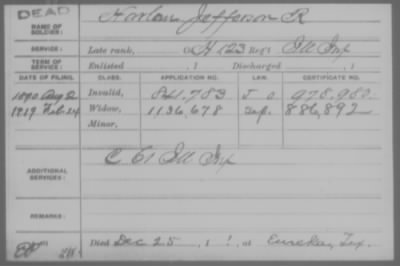 DEAD
NAME OF SOLDIER: Jefferson R
SERVICE: Late rank, Co H 123 Reg't Ill Inf
TERM OF SERVICE: Enlisted , 1 Discharged , 1
DATE OF FILING. CLASS. APPLICATION NO. LAW. CERTIFICATE NO.
1890 Aug 2 Invalid, 841,783 J O 978,980
1919 Feb 24 Widow, 1136,678 886,892
Minor,
ADDITIONAL SERVICES: C 61 Ill Inf
REMARKS:
Died Dec 25 , 1 , at Eureka, Tex.